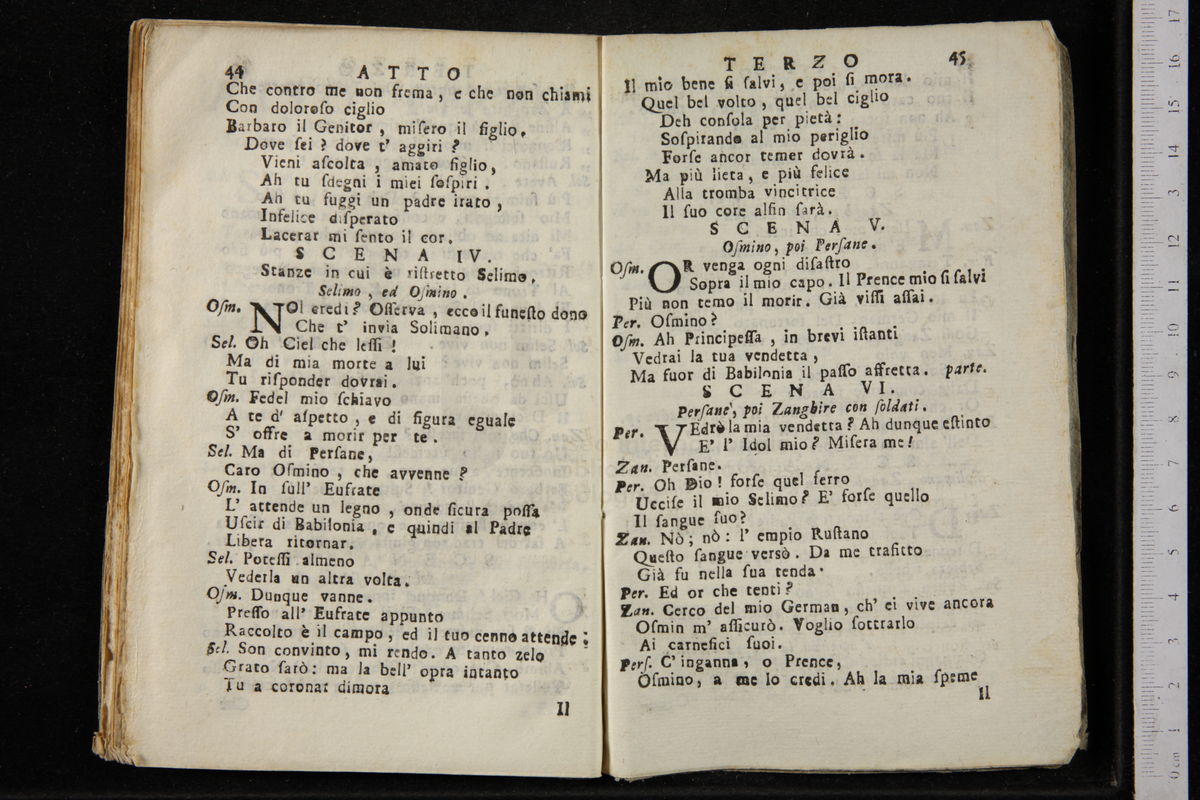 44 ATTO
Che contro me non frema, e che non chiami
Con doloroſo ciglio
Barbaro il Genitor, miſero il figlio.
Dove ſei? dove t' aggiri?
Vieni aſcolta, amato figlio,
Ah tu ſdegni i miei ſoſpiri.
Ah tu fuggi un padre irato,
Infelice diſperato
Lacerar mi ſento il cor.
SCENA IV.
Stanze in cui è riſtretto Selimo.
Selimo, ed Oſmino.
Oſm. NOl credi? Oſſerva, ecco il funeſto dono
Che t' invia Solimano.
Sel. Oh Ciel che leſſi!
Ma di mia morte a lui
Tu riſponder dovrai.
Oſm. Fedel mio ſchiavo
A te d' aſpetto, e di figura eguale
S' offre a morir per te.
Sel. Ma di Perſane,
Caro Oſmino, che avvenne?
Oſm. In ſull' Eufrate
L' attende un legno, onde ſicura poſſa
Uſcir di Babilonia, e quindi al Padre
Libera ritornar.
Sel. Poteſſi almeno
Vederla un altra volta.
Oſm. Dunque vanne.
Preſſo all' Eufrate appunto
Raccolto è il campo, ed il tuo cenno attende:
Sel. Son convinto, mi rendo. A tanto zelo
Grato ſarò: ma la bell' opra intanto
Tu a coronar dimora
Il
TERZO 45
Il mio bene ſi ſalvi, e poi ſi mora.
Quel bel volto, quel bel ciglio
Deh conſola per pietà:
Soſpirando al mio periglio
Forſe ancor temer dovrà.
Ma più lieta, e più felice
Alla tromba vincitrice
Il ſuo core alfin ſarà.
SCENA V.
Oſmino, poi Perſane.
Oſm. OR venga ogni diſaſtro
Sopra il mio capo. Il Prence mio ſi ſalvi
Più non temo il morir. Già viſſi aſſai.
Per. Oſmino?
Oſm. Ah Principeſſa, in brevi iſtanti
Vedrai la tua vendetta,
Ma fuor di Babilonia il paſſo affretta. parte.
SCENA VI.
Perſane, poi Zanghire con ſoldati.
Per. VEdrò la mia vendetta? Ah dunque eſtinto
E' l' Idol mio? Miſera me!
Zan. Perſane.
Per. Oh Dio! forſe quel ferro
Ucciſe il mio Selimo? E' forſe quello
Il ſangue ſuo?
Zan. Nò; nò: l' empio Ruſtano
Queſto ſangue versò. Da me trafitto
Già fu nella ſua tenda.
Per. Ed or che tenti?
Zan. Cerco del mio German, ch' ei vive ancora
Oſmin m' aſſicurò. Voglio ſottrarlo
Ai carnefici ſuoi.
Perſ. C' inganna, o Prence,
Oſmino, a me lo credi. Ah la mia ſpeme
Il
0 cm 1 2 3 4 5 6 7 8 9 10 11 12 13 14 15 16 17